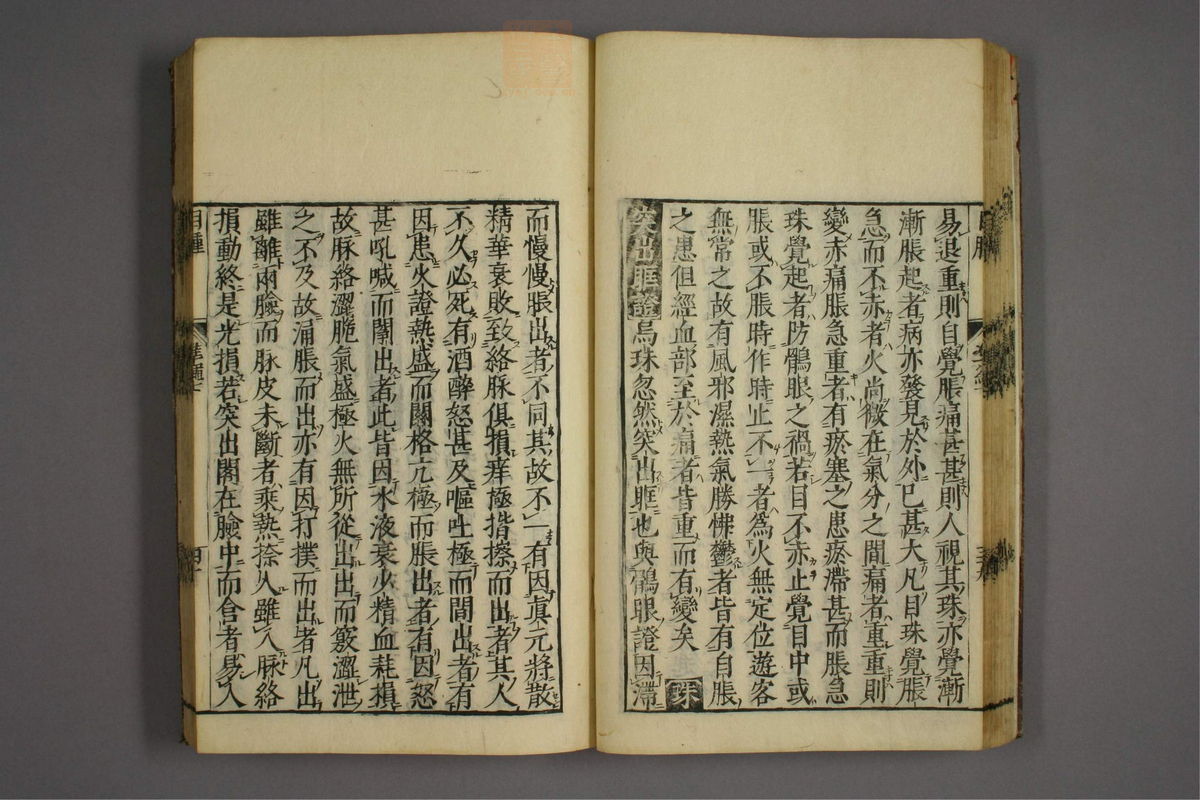 易退重則自覺脹痛甚甚則人視其珠亦覺漸
漸脹起者病亦發見於外已甚大凡目珠覺脹
急而不赤者火尚微在氣分之間痛者重重則
變赤痛脹急重者有瘀塞之患瘀滯甚而脹急
珠覺起者防鶻眼之禍若目不赤止覺目中或
脹或不脹時作時止不一者為火無定位遊客
無常之故有風邪濕熱氣勝怫鬱者皆有自脹
之患但經血部至於痛者皆重而有變矣 珠
突出眶證烏珠忽然突出眶也與鶻眼證因滯
而慢慢脹出者不同其故不一有因真元將散
精華衰敗致絡脉俱損痒極揩擦而出者其人
不久必死有酒醉怒甚及嘔吐極而閧出者有
因患火證熱盛而關格亢極而脹出者有因怒
甚吼喊而閧出者此皆因水液衰少精血耗損
故脉絡澀脆氣盛極火無所從出出而竅澀泄
之不及故涌脹而出亦有因打撲而出者凡出
雖離兩瞼而脉皮未斷者乘熱捺入雖入脉絡
損動終是光損若突出閣在瞼中而含者易入
目
準繩